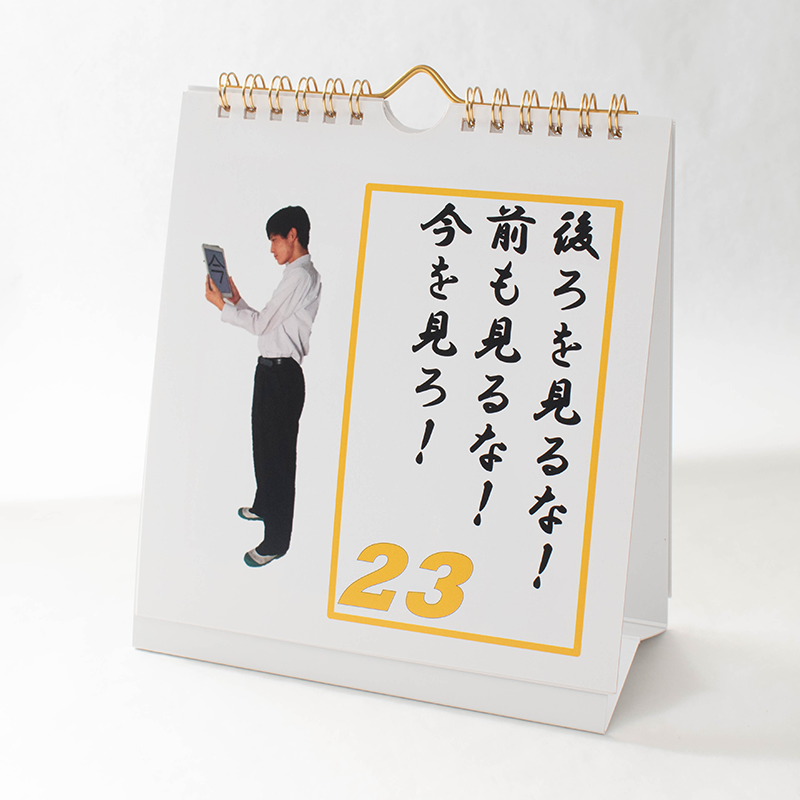 後ろを見るな！
前も見るな！
今を見ろ！
23
今